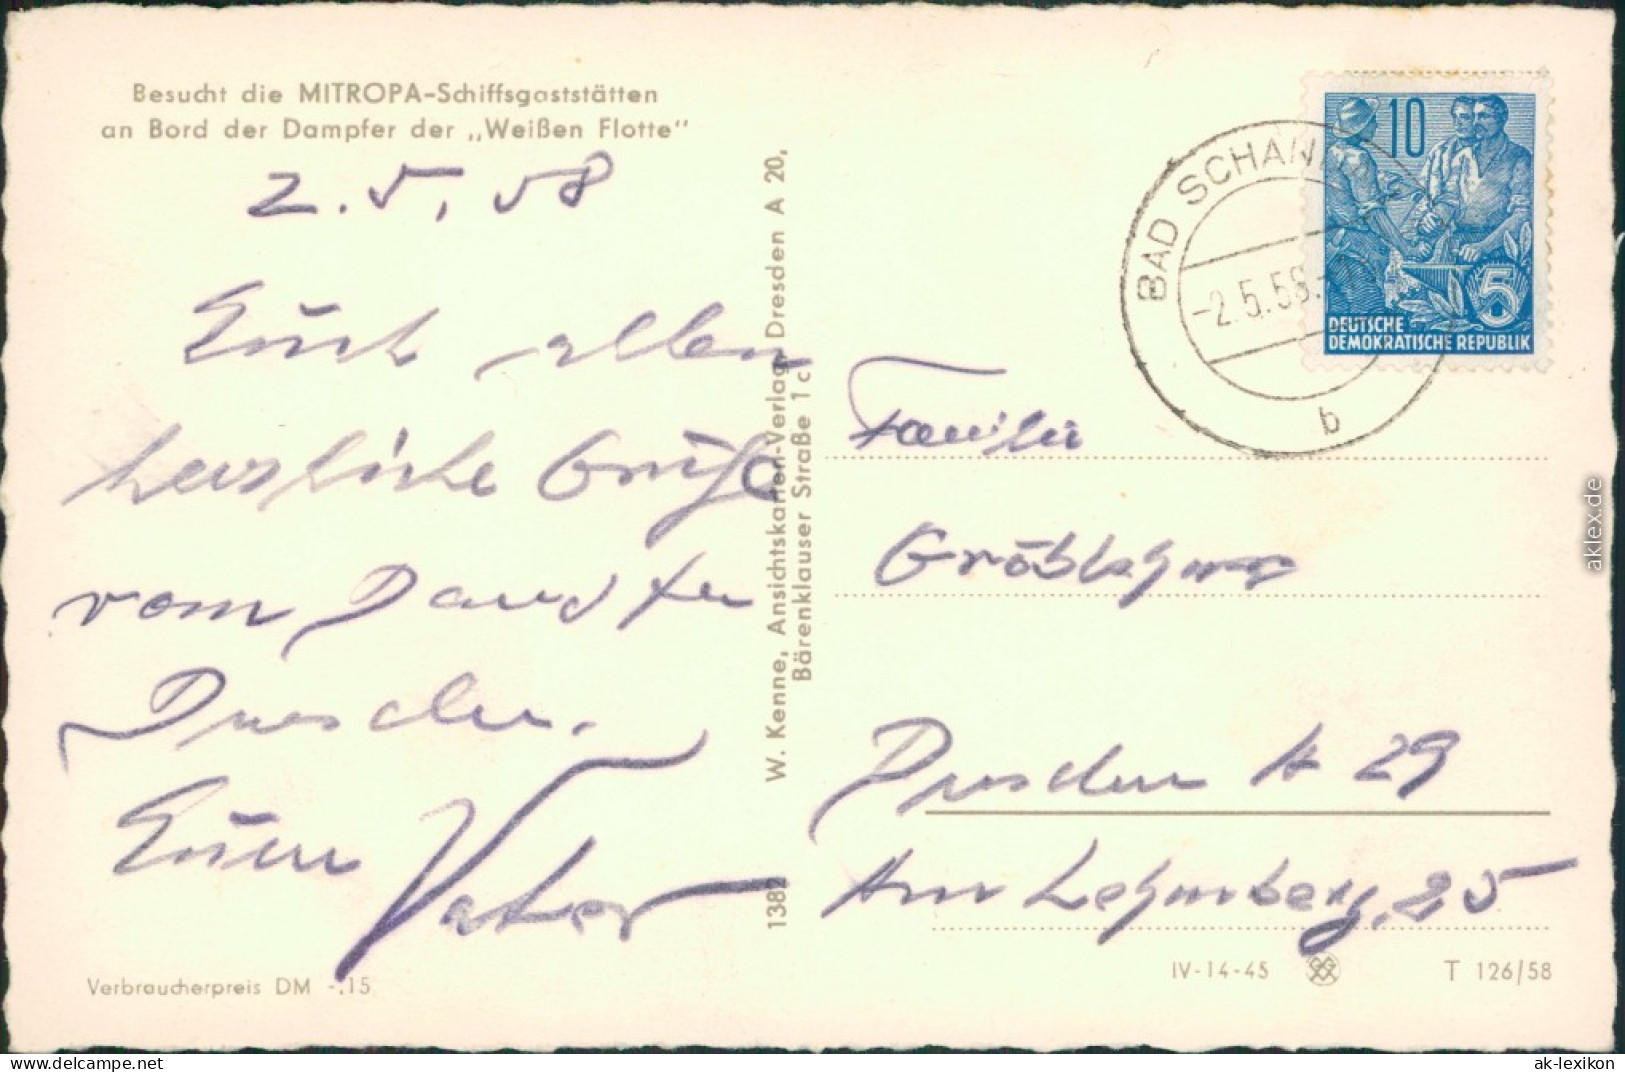 Besucht die MITROPA-Schiffsgaststätten
an Bord der Dampfer der „Weißen Flotte"
2. 5. 58
Euch allen
herzliche Grüße
vom Dampfer
Dresden.
Euer Vater
Verbraucherpreis DM -.15
W. Kenne, Ansichtskarten-Verlag, Dresden A 20,
Bärenklauser Straße 1 c
1382
BAD SCHAN
-2.5.58.-
b
10
5
DEUTSCHE
DEMOKRATISCHE REPUBLIK
Familie
Dresden A 29
Am Lehmberg 25
IV-14-45
T 126/58
aklex.de
www.delcampe.net
ak-lexikon